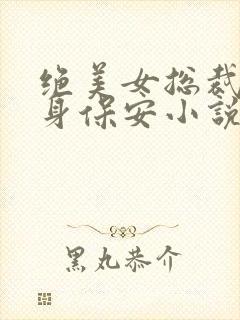 绝美女总裁
身保安小説
黑丸恭介